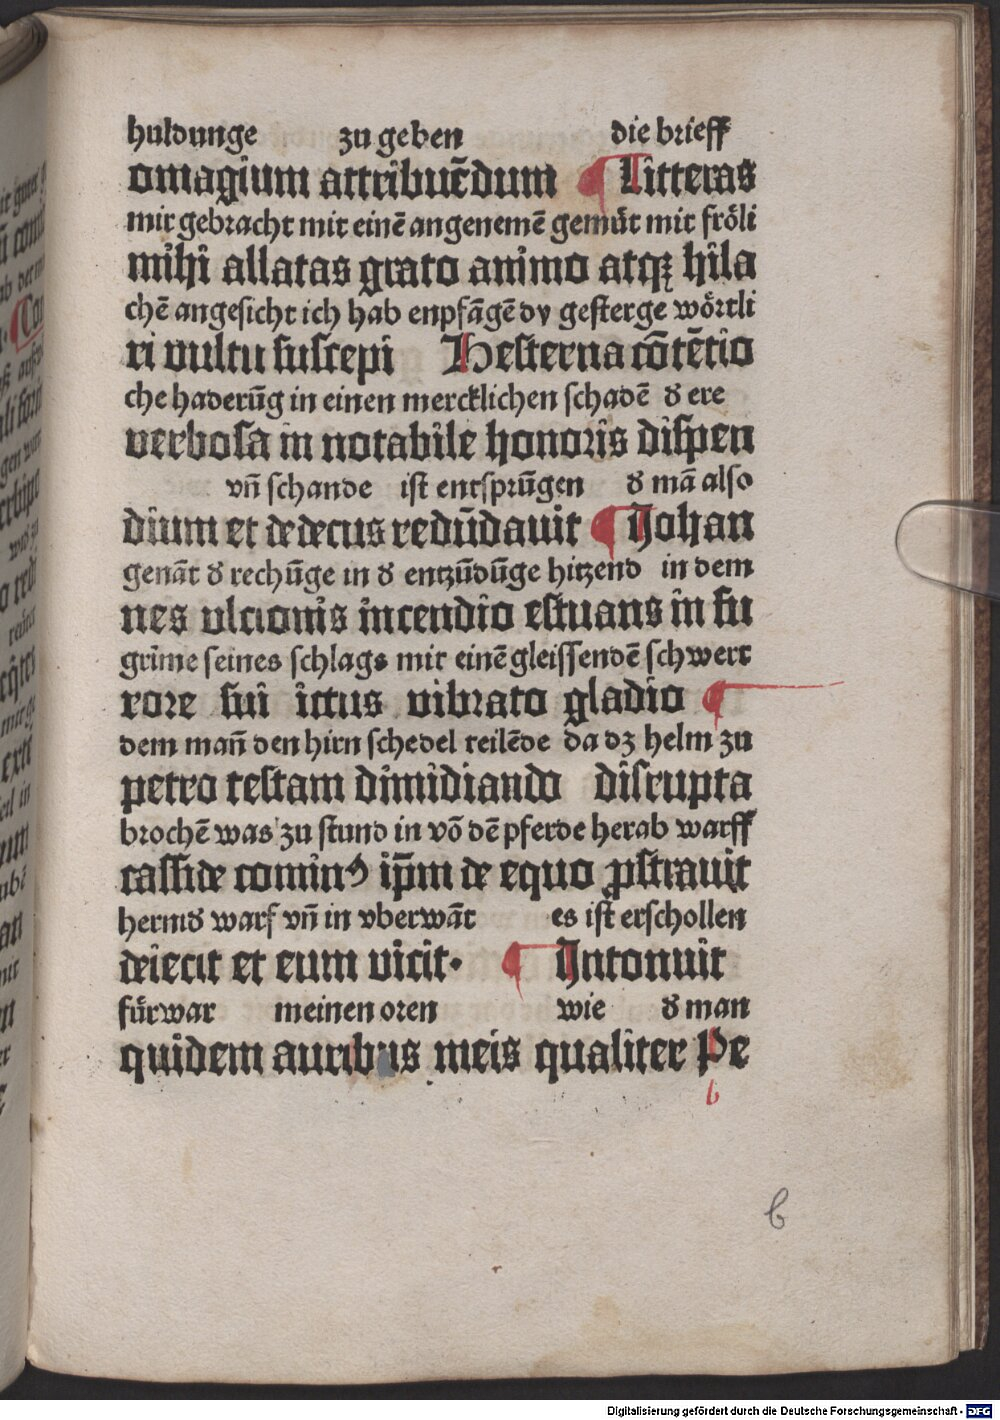 huldunge zu geben die brieff
omagium attribuēdum ¶ Litteras
mir gebracht mit einē angenemē gemüt mit fröli
mihi allatas grato animo atqꝫ hila
chē angesicht ich hab enpfāgē dy gesterge wörtli
ri vultu suscepi Hesterna cōtētio
che haderūg in einen mercklichen schadē ꝺ ere
verbosa in notabile honoris dispen
vn̄ schande ist entsprūgen ꝺ mā also
dium et dedecus redūdavit ¶ Johan
genāt ꝺ rechūge in ꝺ entzūdūge hitzend in dem
nes vlcionis incendio estuans in fu
grime seines schlags mit einē gleissendē schwert
rore sui ictus vibrato gladio ¶
dem man̄ den hirn schedel teilēde da dꝫ helm zu
petro testam dimidiando disrupta
brochē was zu stund in vō dē pferde herab warff
casside cominꝰ ip̄m de equo ꝓstravit
hermꝺ warf vn̄ in vberwāt es ist erschollen
deiecit et eum vicit. ¶ Intonuit
fürwar meinen oren wie ꝺ man
quidem auribus meis qualiter Pe
b
b
Digitalisierung gefördert durch die Deutsche Forschungsgemeinschaft - DFG